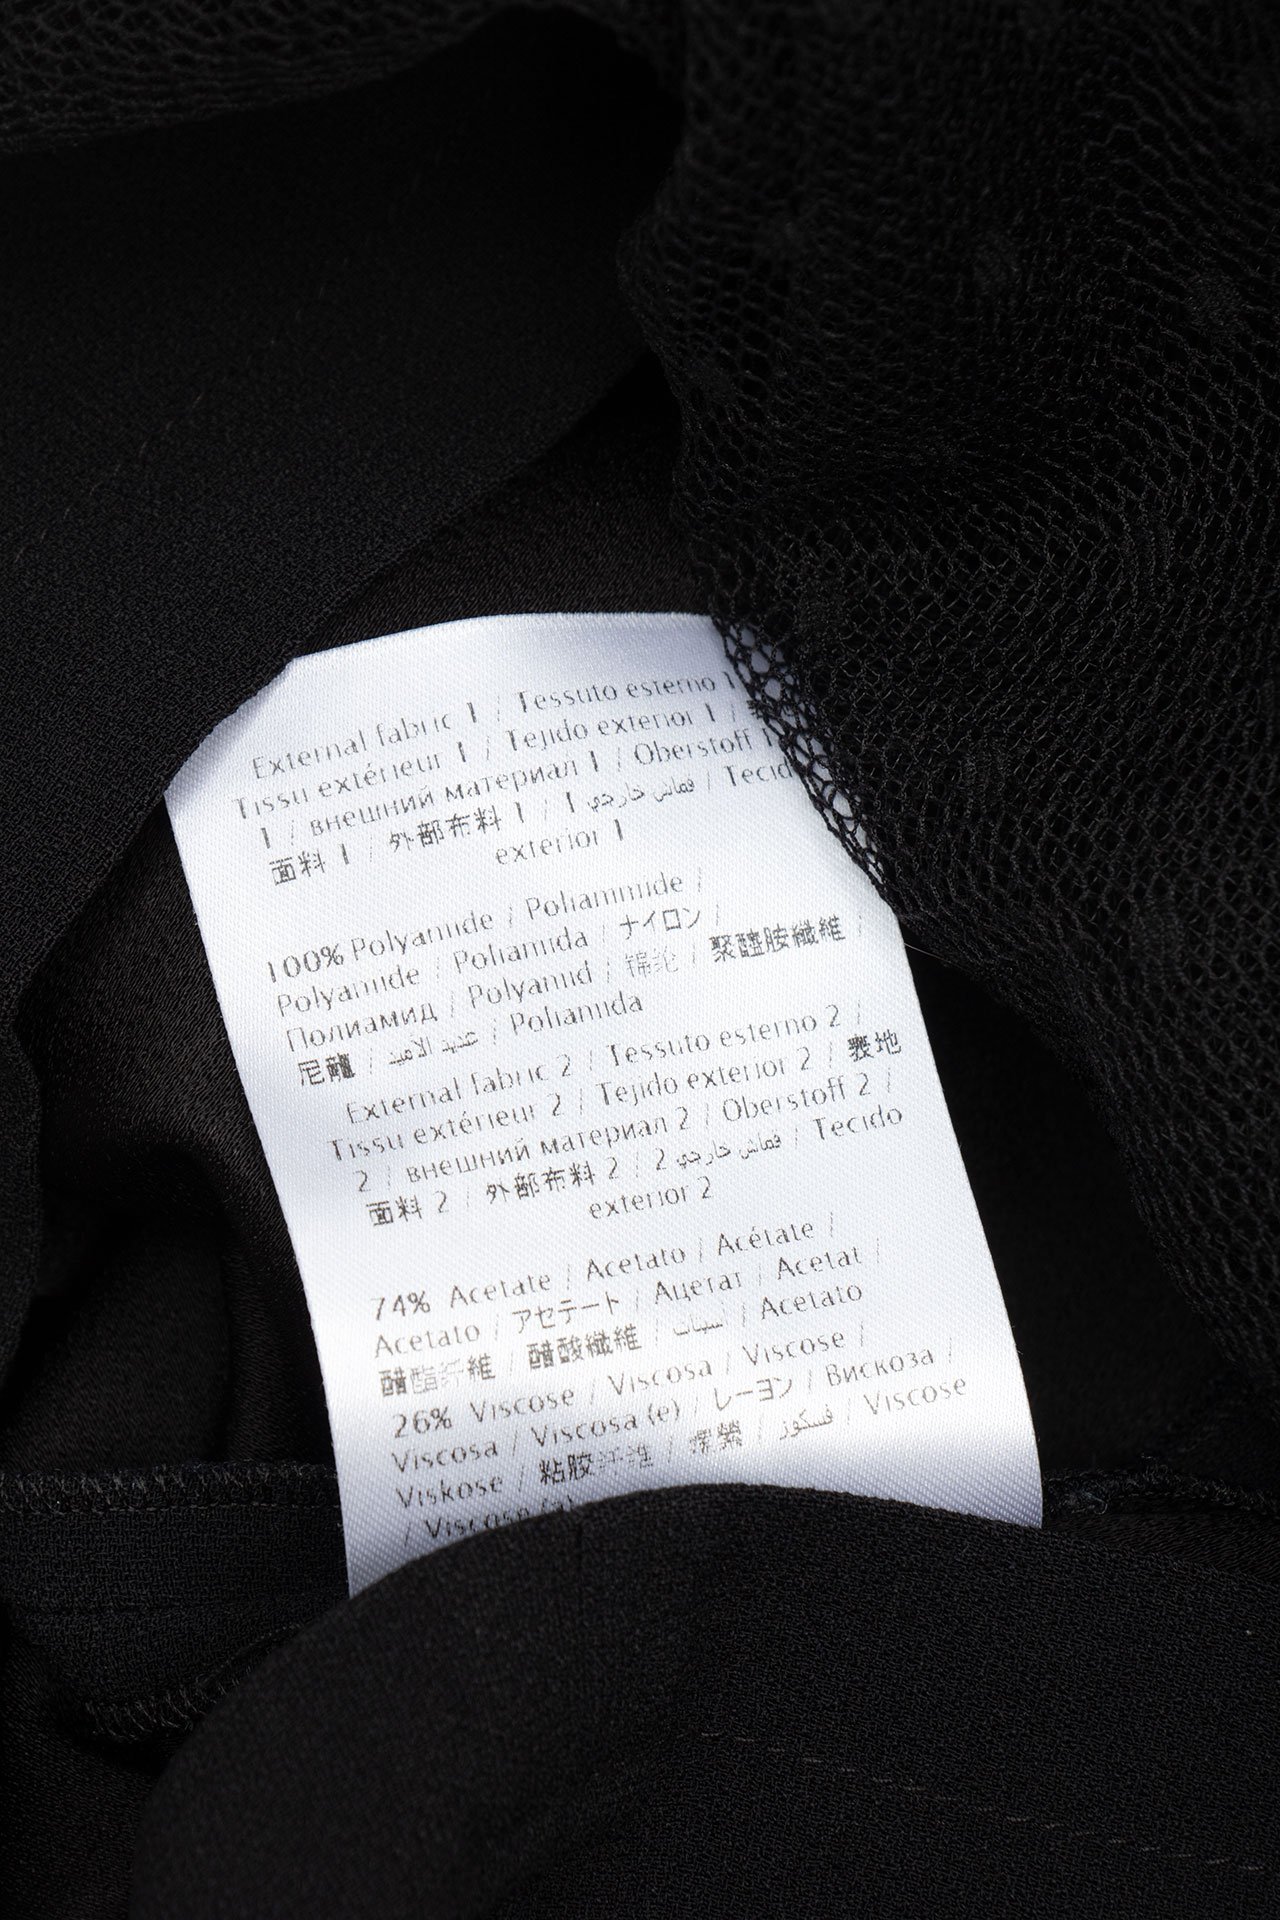 External fabric 1 / Tessuto esterno 1
Tissu extérieur 1 / Tejido exterior 1 /
1 / внешний материал 1 / Oberstoff
面料 1 / 外部布料 1 / قماش خارجي 1 / Tecid
exterior 1
100% Polyamide / Poliammide /
Polyamide / Poliamida / ナイロン /
Полиамид / Polyamid / 锦纶 / 聚醯胺纖維 /
尼龍 / / Poliamida
External fabric 2 / Tessuto esterno 2 /
Tissu extérieur 2 / Tejido exterior 2 / 表地
2 / внешний материал 2 / Oberstoff 2 /
面料 2 / 外部布料 2 / قماش خارجي 2 / Tecido
exterior 2
74% Acetate / Acetato / Acétate /
Acetato / アセテート / Ацетат / Acetat /
醋酯纤维 / 醋酸纖維 / / Acetato
26% Viscose / Viscosa / Viscose /
Viscosa / Viscosa (e) / レーヨン / Вискоза /
Viskose / 粘胶纤维 / / فسكوز / Viscose
/ Viscose (a)